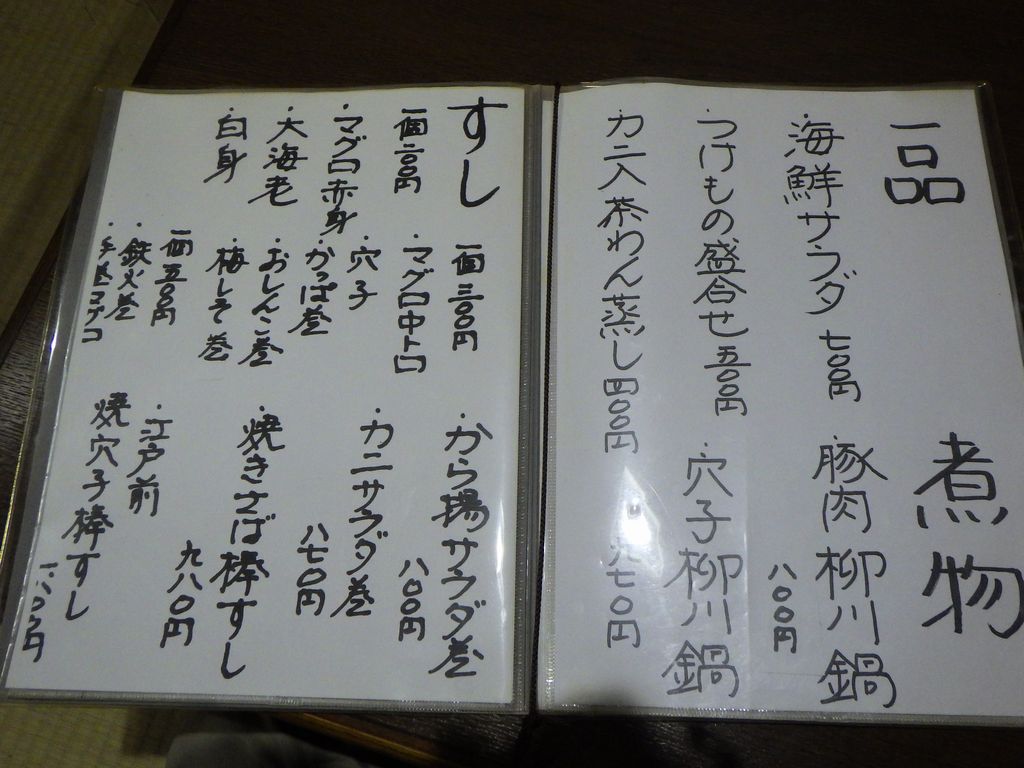 一品
・海鮮サラダ 七００円
・つけもの盛合せ 五００円
カニ入茶わん蒸し 四００円
煮物
豚肉柳川鍋
八００円
穴子柳川鍋
九七０円
すし
一個 二００円
・マグロ赤身
・大海老
・白身
一個 三００円
・マグロ中トロ
・穴子
・かっぱ巻
・おしんこ巻
・梅しそ巻
一個 五００円
・鉄火巻
・手巻コナコ
・から揚サラダ巻
八００円
・カニサラダ巻
八七０円
・焼きさば棒すし
九八０円
・江戸前
焼穴子棒すし